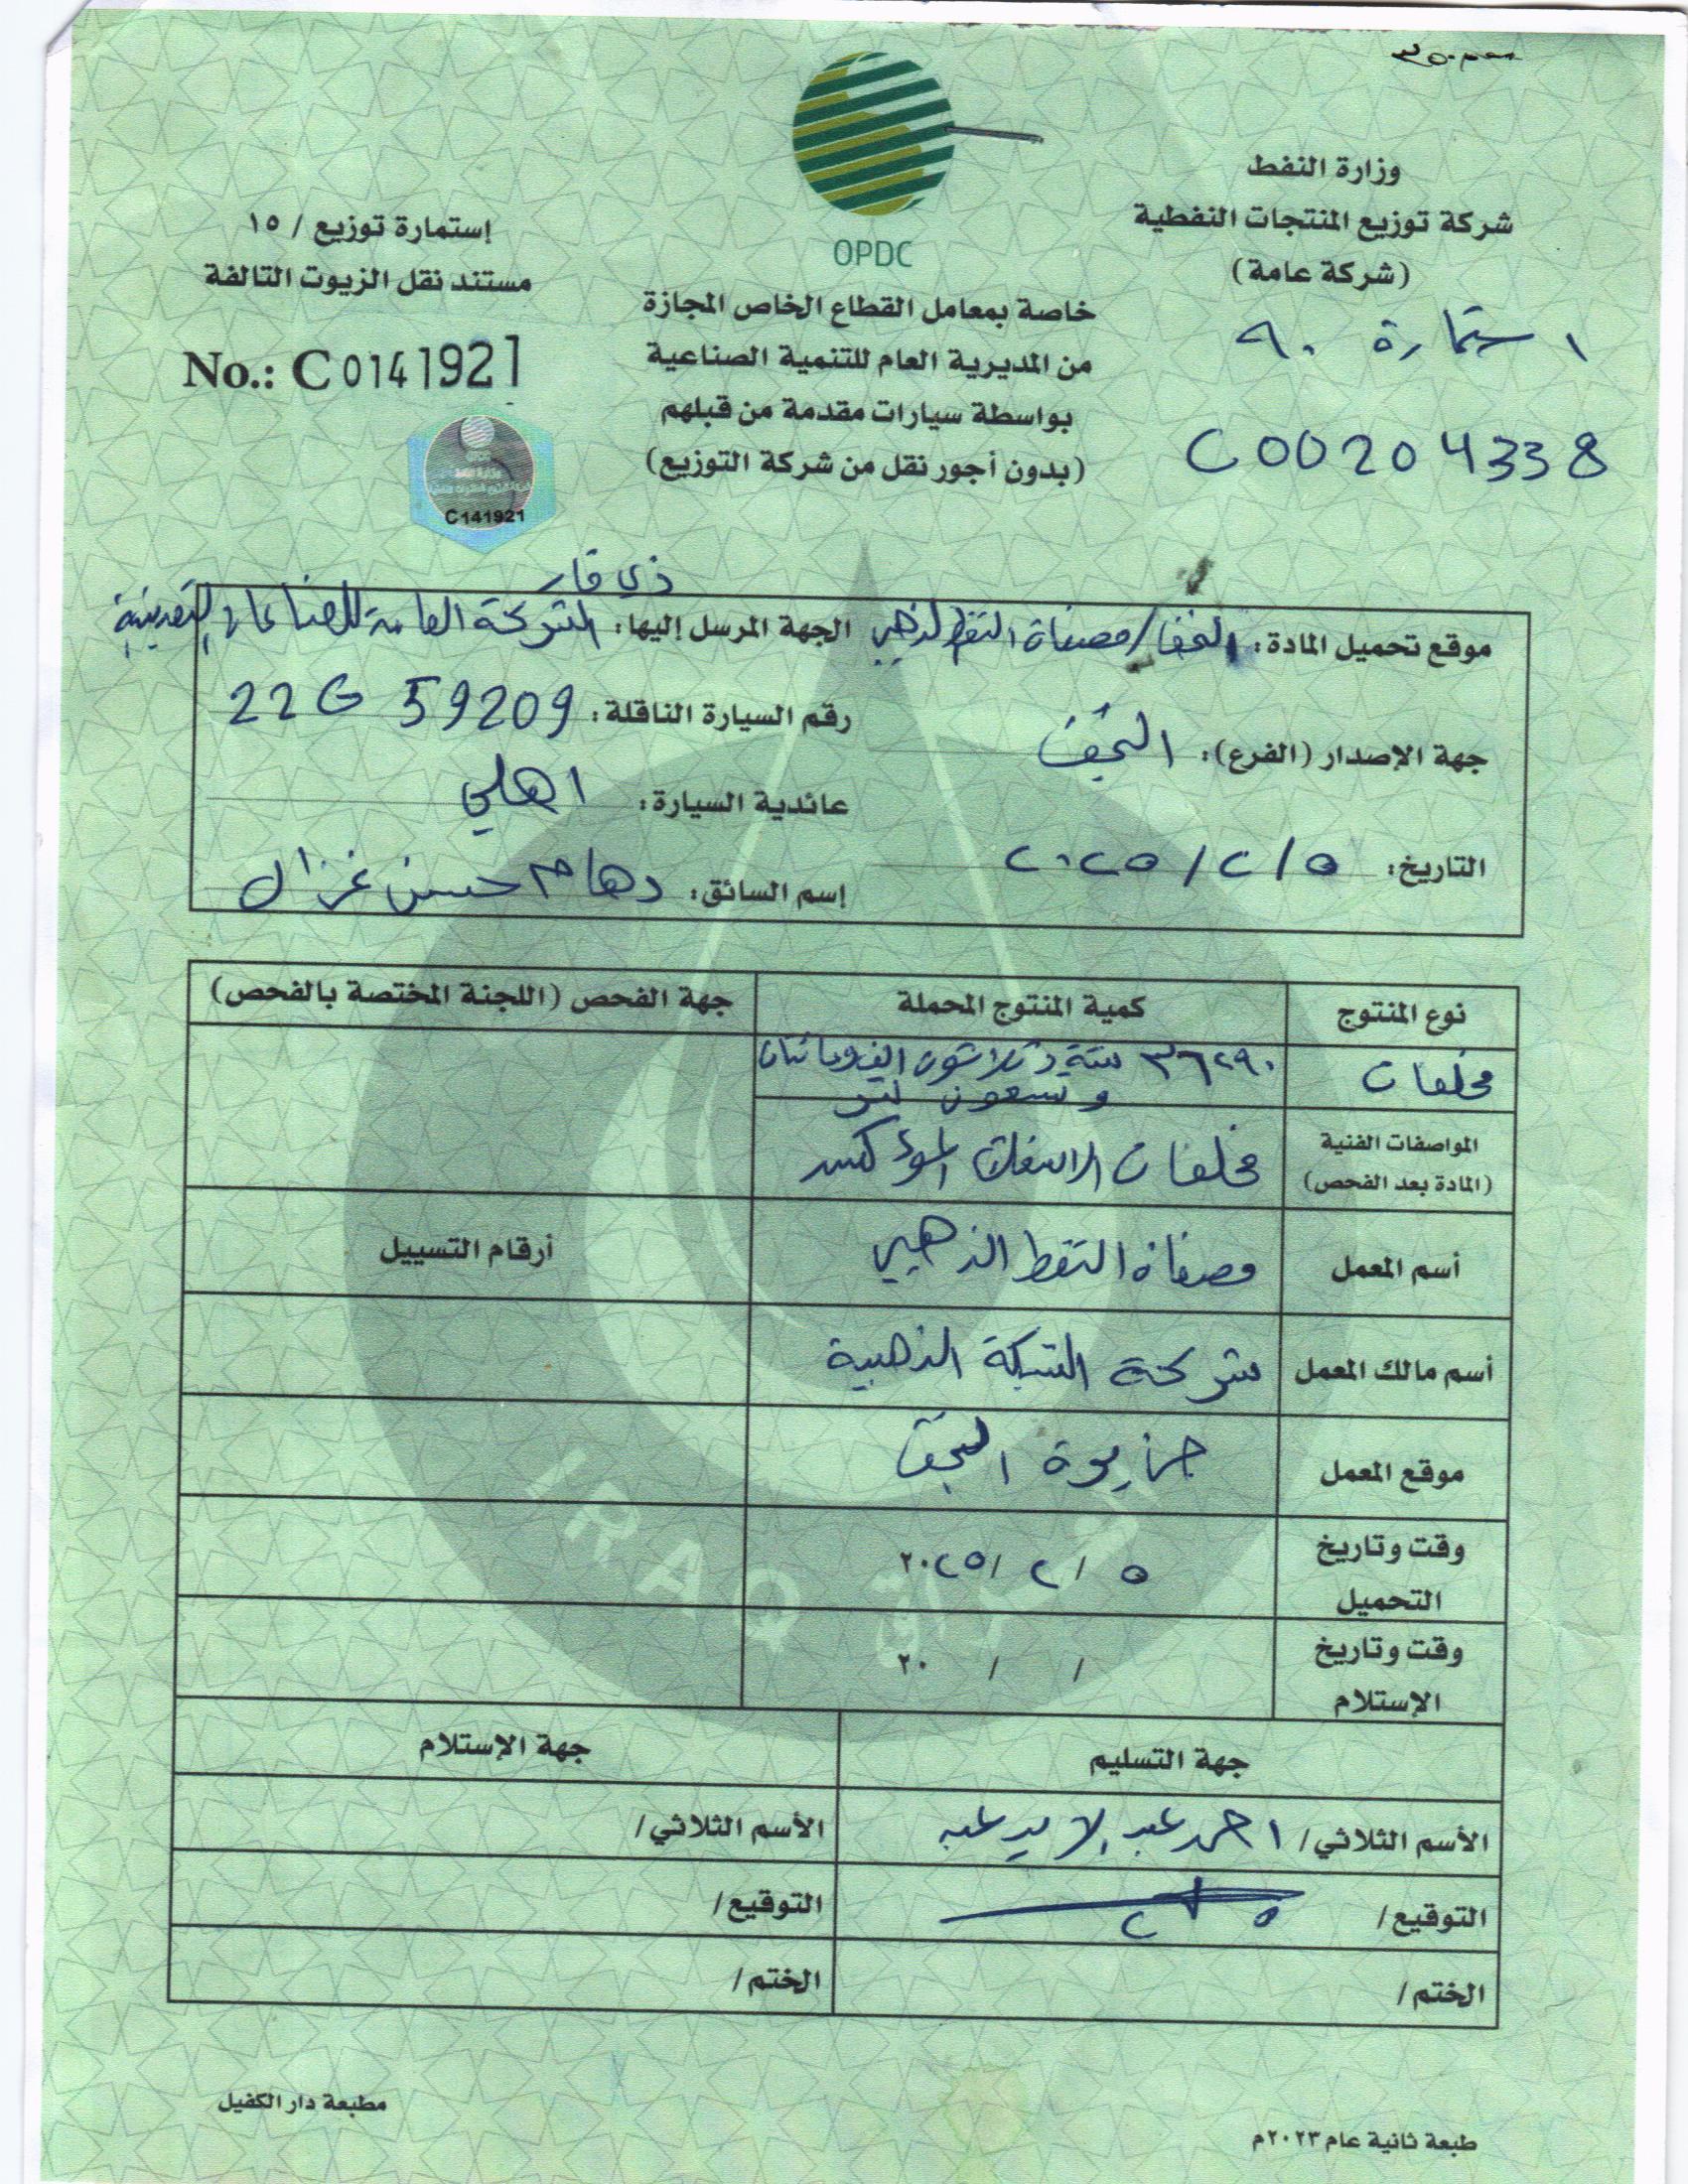 وزارة النفط
شركة توزيع المنتجات النفطية
(شركة عامة)
استمارة ٩٠
C00204338
OPDC
خاصة بمعامل القطاع الخاص المجازة
من المديرية العام للتنمية الصناعية
بواسطة سيارات مقدمة من قبلهم
(بدون أجور نقل من شركة التوزيع)
إستمارة توزيع / ١٥
مستند نقل الزيوت التالفة
No.: C 0141921
C141921
موقع تحميل المادة: النجف / مصفاة النفط الذهبي
جهة الإصدار (الفرع): النجف
التاريخ: ٥ / ٢ / ٢٠٢٥
ذي قار
الجهة المرسل إليها: الشركة العامة للصناعات التعدينية
رقم السيارة الناقلة: 22G 59209
عائدية السيارة: اهلي
إسم السائق: دهام حسن غزال
نوع المنتوج كمية المنتوج المحملة جهة الفحص (اللجنة المختصة بالفحص)
مخلفات ٣٦٢٩٠ ستة وثلاثون الف ومائتان
وتسعون لتر
المواصفات الفنية
(المادة بعد الفحص) مخلفات الاسفلت المؤكسد
أسم المعمل مصفاة النفط الذهبي أرقام التسييل
أسم مالك المعمل شركة الشبكة الذهبية
موقع المعمل جزيرة النجف
وقت وتاريخ
التحميل ٥ / ٢ / ٢٠٢٥
وقت وتاريخ
الإستلام / / ٢٠
جهة التسليم جهة الإستلام
الأسم الثلاثي/ احمد عبد الامير عبد الأسم الثلاثي/
التوقيع/ ٥/٢ التوقيع/
الختم/ الختم/
مطبعة دار الكفيل
طبعة ثانية عام ٢٠٢٣م
IRAQ